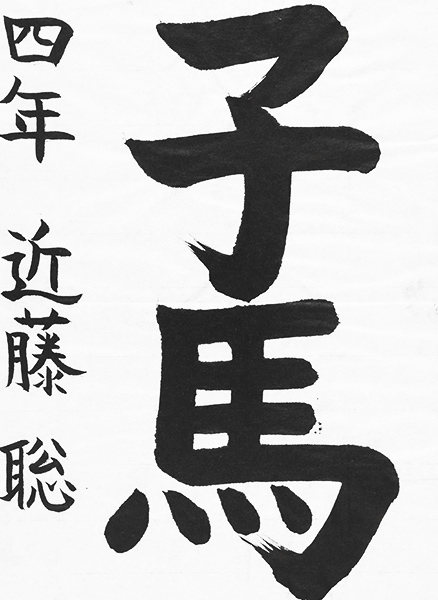 子馬
四年 近藤 聡